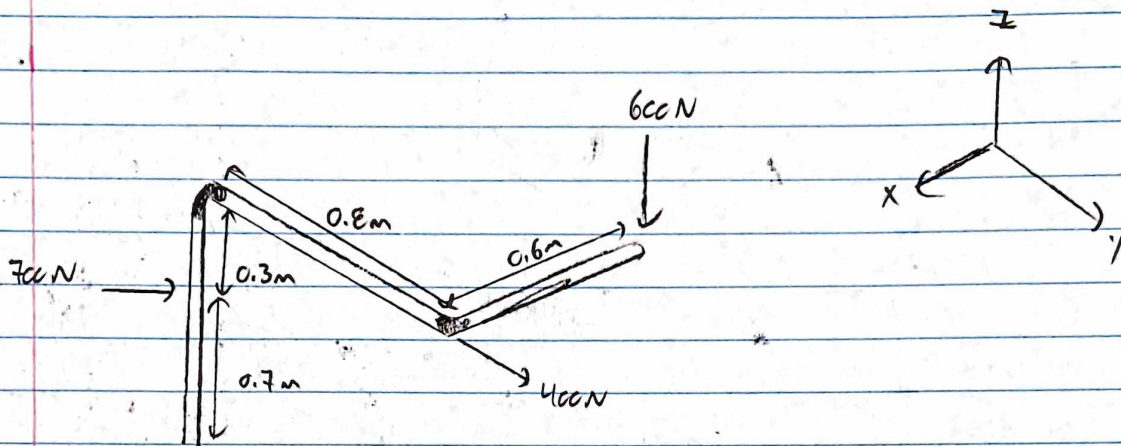 Z
600N
X
0.8m
0.6m
y
700N
0.3m
0.7m
400N